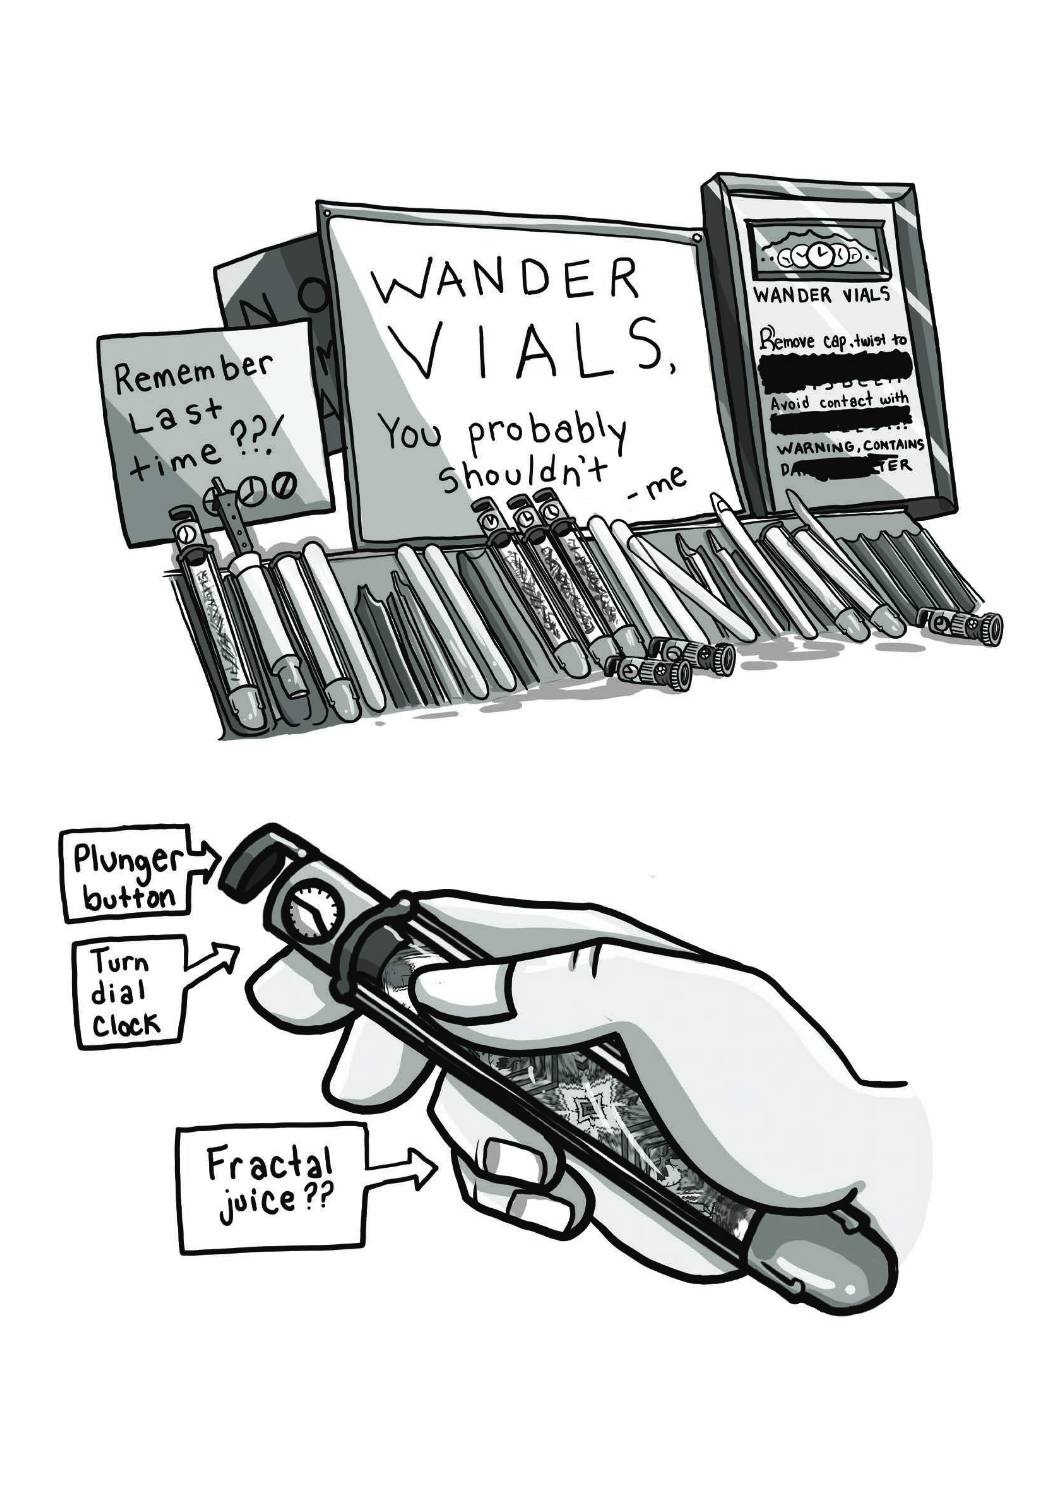 NO
M
A
Remember
Last
time??!
WANDER
VIALS,
You probably
shouldn't
-me
WANDER VIALS
Remove cap, twist to
Avoid contact with
WARNING, CONTAINS
DA
TER
Plunger
button
Turn
dial
Clock
Fractal
juice??